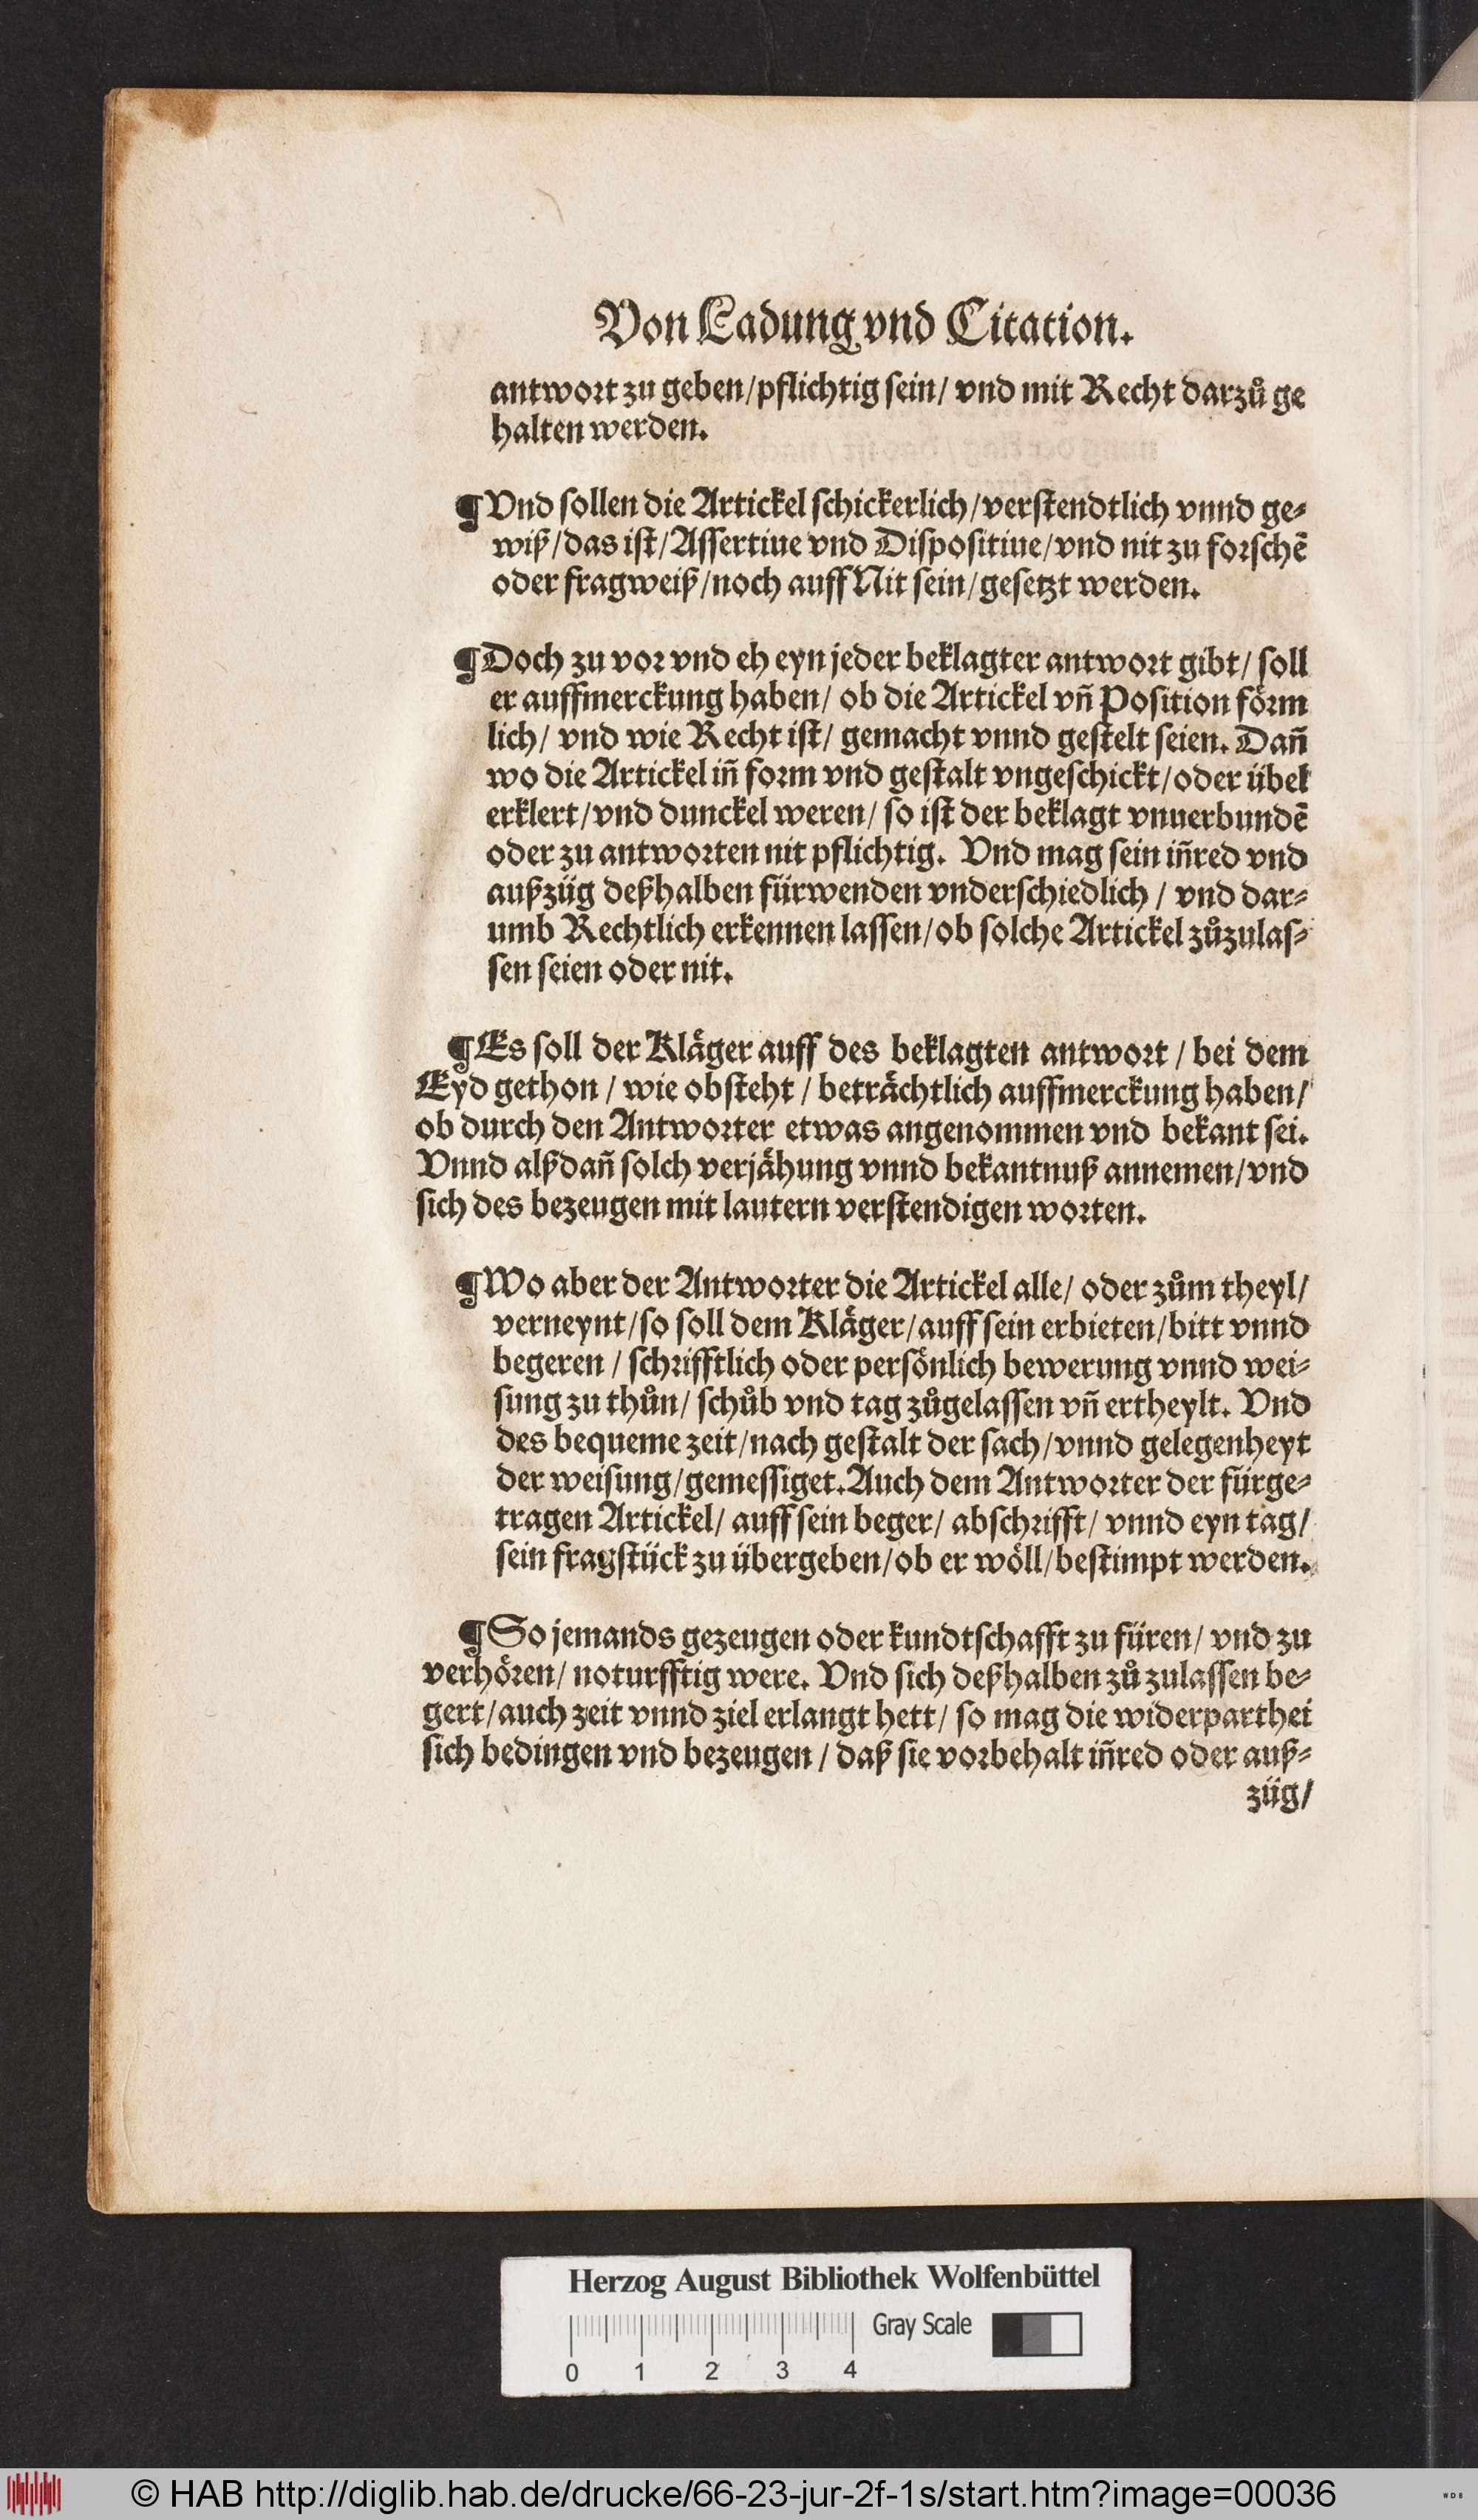 Von Ladung vnd Citation.
antwort zu geben/pflichtig sein/ vnd mit Recht darzů ge
halten werden.
¶Vnd sollen die Artickel schickerlich/verstendtlich vnnd ge⸗
wiß/das ist/Assertiue vnd Dispositiue/vnd nit zu forschẽ
oder fragweiß/noch auff Nit sein/gesetzt werden.
¶Doch zu vor vnd eh eyn jeder beklagter antwort gibt/ soll
er auffmerckung haben/ ob die Artickel vñ Position förm
lich/ vnd wie Recht ist/ gemacht vnnd gestelt seien. Dañ
wo die Artickel iñ form vnd gestalt vngeschickt/oder übel
erklert/vnd dunckel weren/ so ist der beklagt vnuerbundẽ
oder zu antworten nit pflichtig. Vnd mag sein iñred vnd
außzüg deßhalben fürwenden vnderschiedlich / vnd dar⸗
umb Rechtlich erkennen lassen/ob solche Artickel zůzulas⸗
sen seien oder nit.
¶Es soll der Kläger auff des beklagten antwort / bei dem
Eyd gethon / wie obsteht / beträchtlich auffmerckung haben/
ob durch den Antworter etwas angenommen vnd bekant sei.
Vnnd alßdañ solch verjähung vnnd bekantnuß annemen/vnd
sich des bezeugen mit lautern verstendigen worten.
¶Wo aber der Antworter die Artickel alle/ oder zům theyl/
verneynt/so soll dem Kläger/auff sein erbieten/bitt vnnd
begeren / schrifftlich oder persönlich bewerung vnnd wei⸗
sung zu thůn/ schůb vnd tag zůgelassen vñ ertheylt. Vnd
des bequeme zeit/nach gestalt der sach/vnnd gelegenheyt
der weisung/gemessiget. Auch dem Antworter der fürge⸗
tragen Artickel/ auff sein beger/ abschrifft/ vnnd eyn tag/
sein fragstück zu übergeben/ob er wöll/bestimpt werden.
¶So jemands gezeugen oder kundtschafft zu füren/ vnd zu
verhören/ noturfftig were. Vnd sich deßhalben zů zulassen be⸗
gert/auch zeit vnnd ziel erlangt hett/ so mag die widerparthei
sich bedingen vnd bezeugen / daß sie vorbehalt iñred oder auß⸗
züg/
Herzog August Bibliothek Wolfenbüttel
Gray Scale
0 1 2 3 4
© HAB http://diglib.hab.de/drucke/66-23-jur-2f-1s/start.htm?image=00036
WDB